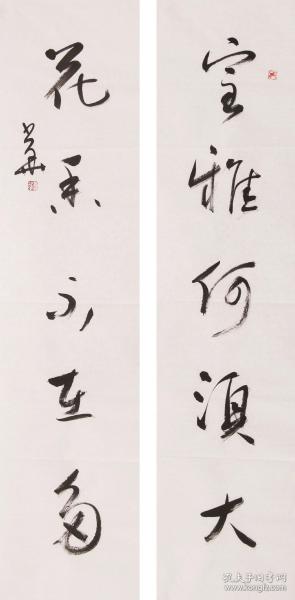 室雅何须大
花香不在多
孔夫子旧书网